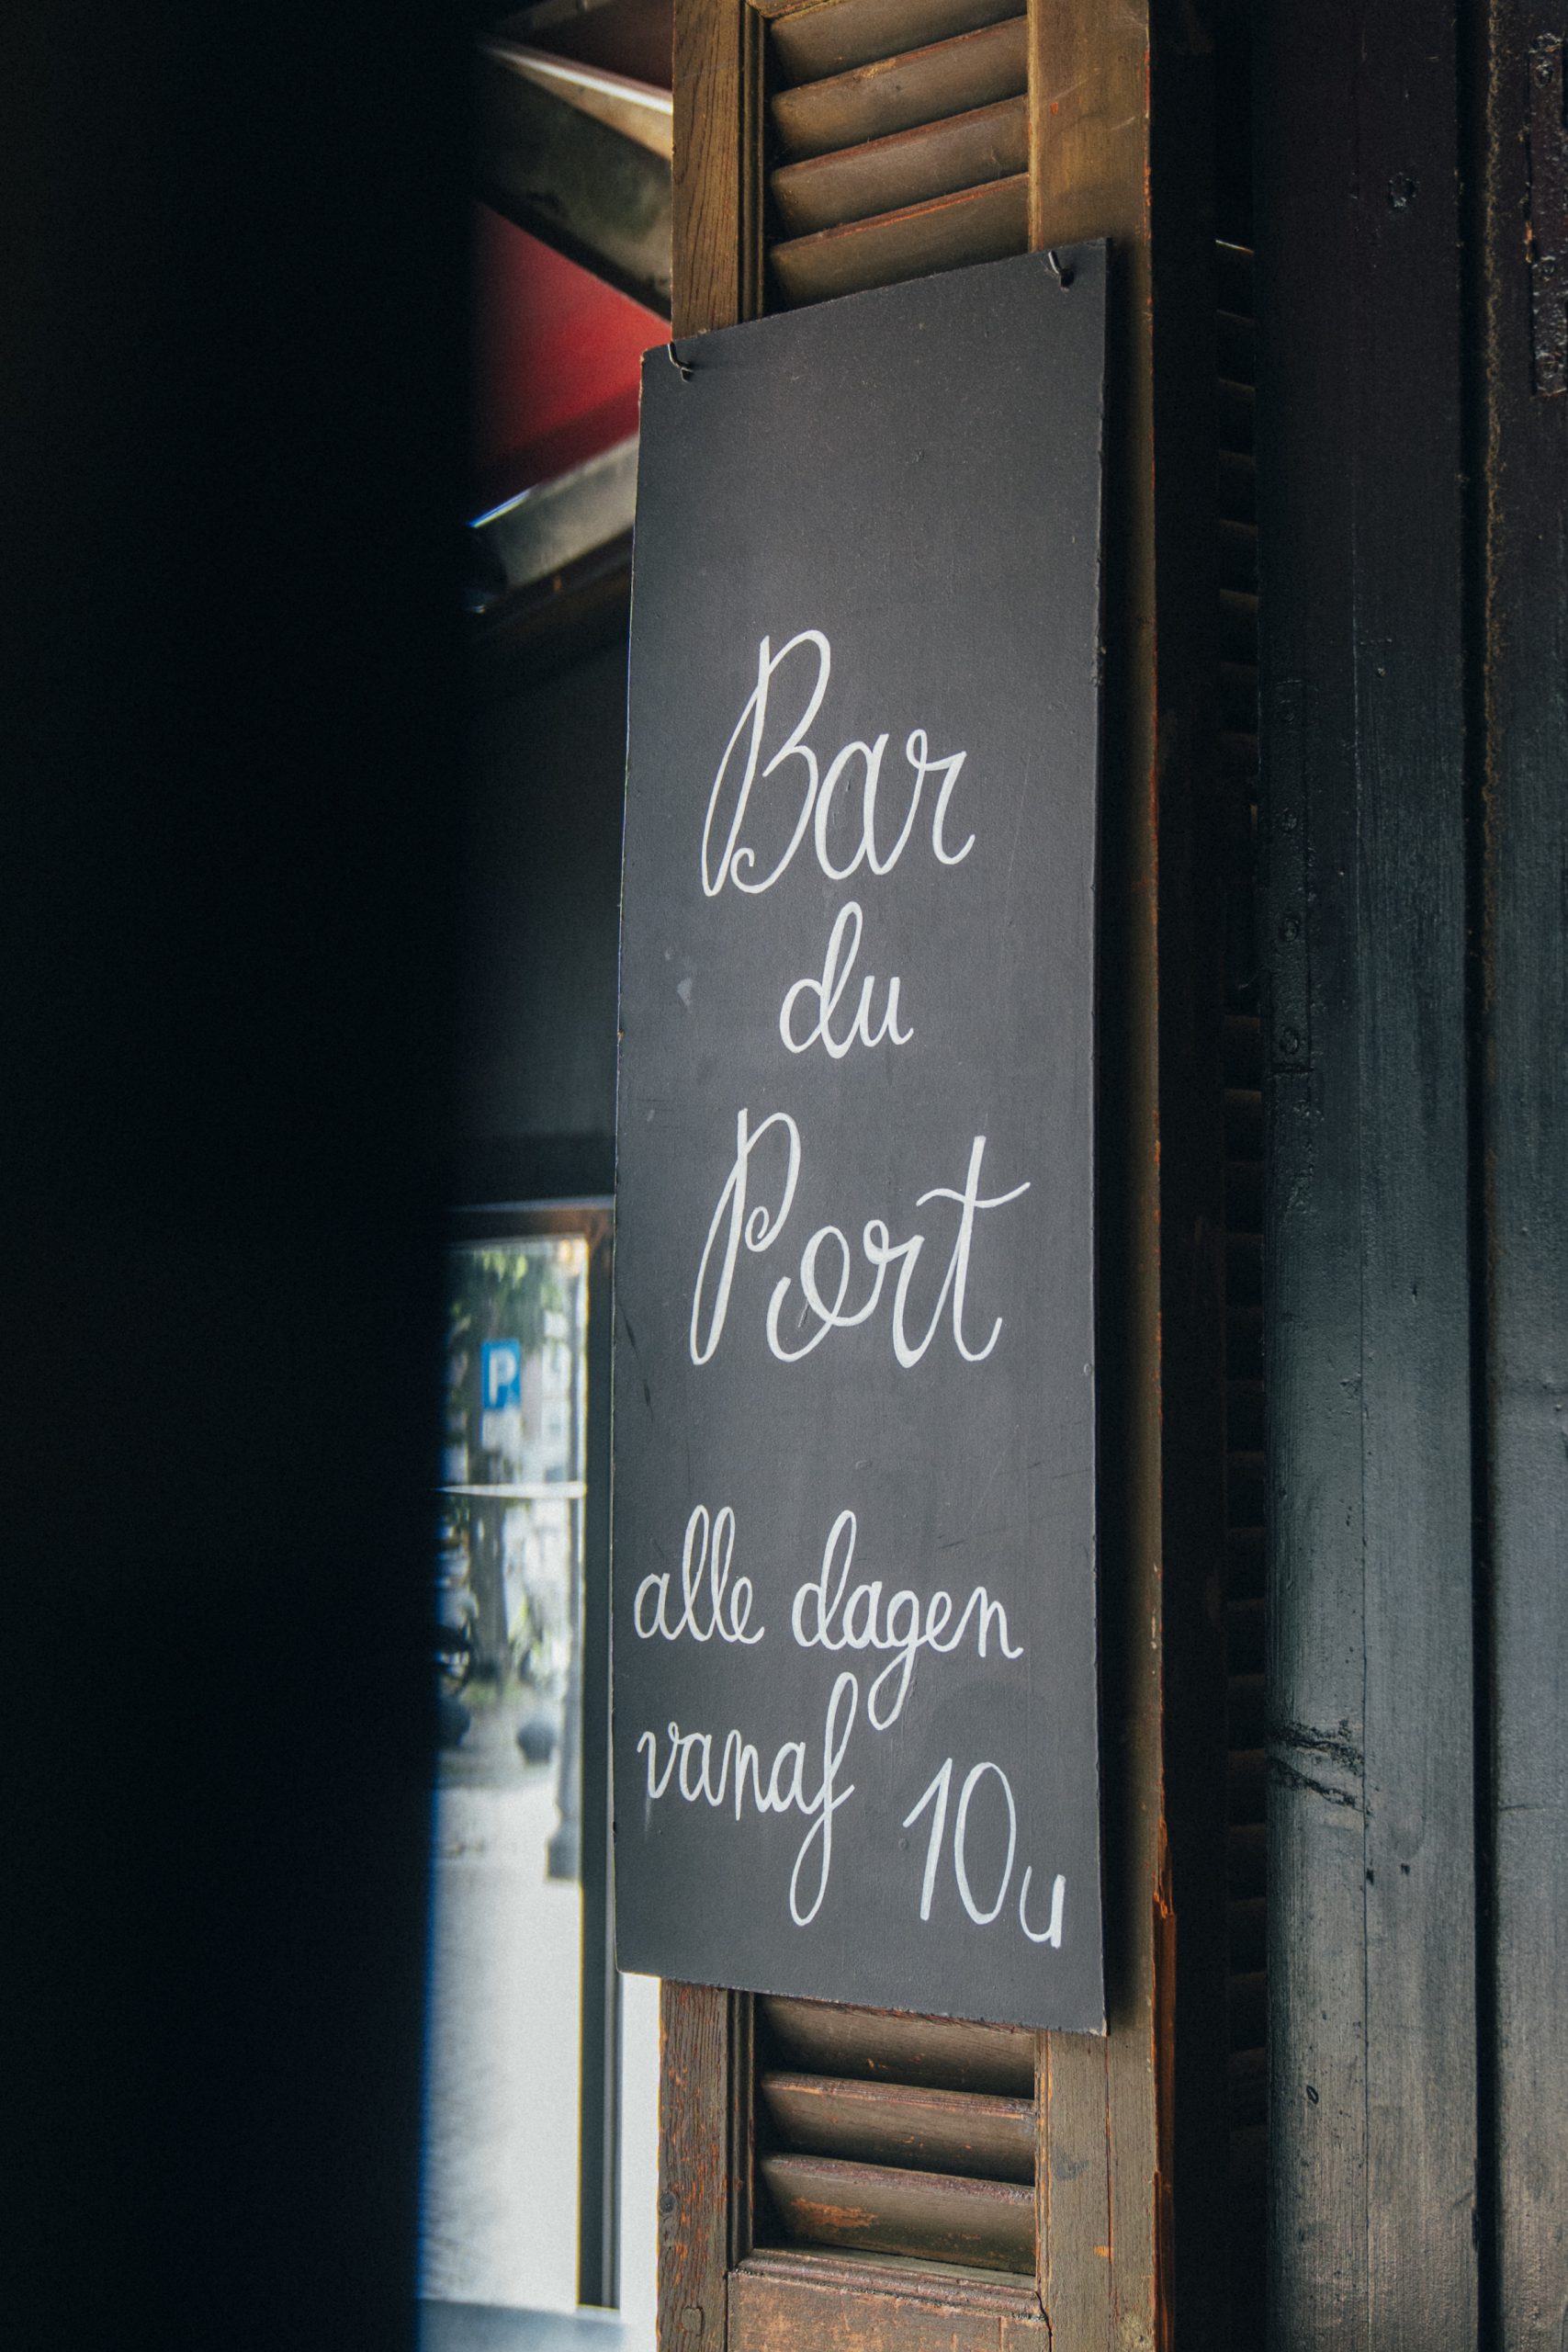 Bar
du
Port
alle dagen
vanaf 10u
P